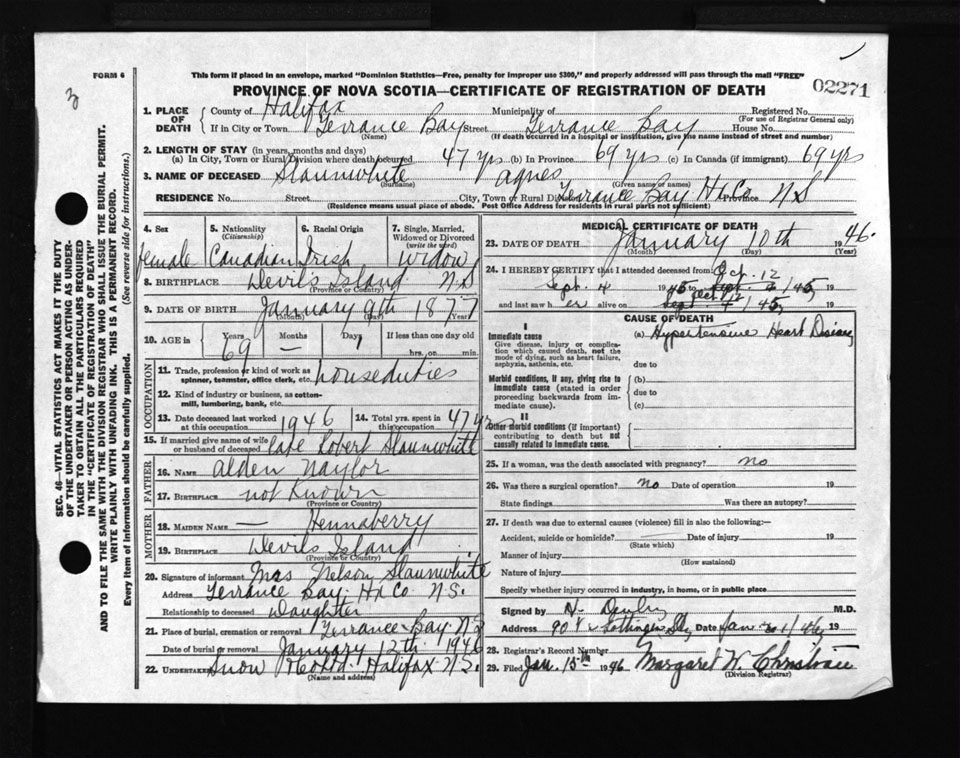 FORM 6
3
This form if placed in an envelope, marked "Dominion Statistics—Free, penalty for improper use $300," and properly addressed will pass through the mail "FREE"
PROVINCE OF NOVA SCOTIA—CERTIFICATE OF REGISTRATION OF DEATH
02271
1. PLACE OF DEATH
County of Halifax Municipality of Registered No.
(For use of Registrar General only)
If in City or Town Terrance Bay Street Terrance Bay House No.
(Name) (If death occurred in a hospital or institution, give the name instead of street and number)
2. LENGTH OF STAY (in years, months and days)
(a) In City, Town or Rural Division where death occurred 47 yrs (b) In Province 69 yrs (c) In Canada (if immigrant) 69 yrs
3. NAME OF DECEASED Slaunwhite Agnes
(Surname) (Given name or names)
RESIDENCE No. Street City, Town or Rural Division Terrance Bay Hx Co Province N S
(Residence means usual place of abode. Post Office Address for residents in rural parts not sufficient)
SEC. 46—VITAL STATISTICS ACT MAKES IT THE DUTY
OF THE UNDERTAKER OR PERSON ACTING AS UNDER-
TAKER TO OBTAIN ALL THE PARTICULARS REQUIRED
IN THE "CERTIFICATE OF REGISTRATION OF DEATH"
AND TO FILE THE SAME WITH THE DIVISION REGISTRAR WHO SHALL ISSUE THE BURIAL PERMIT.
WRITE PLAINLY WITH UNFADING INK. THIS IS A PERMANENT RECORD.
Every item of Information should be carefully supplied. (See reverse side for instructions.)
4. Sex
5. Nationality (Citizenship)
6. Racial Origin
7. Single, Married, Widowed or Divorced (write the word)
female Canadian Irish widow
8. BIRTHPLACE Devil's Island N.S
(Province or Country)
9. DATE OF BIRTH January 9th 1877
(Month) (Day) (Year)
10. AGE in Years Months Days If less than one day old
69 — 1 hrs. or min.
OCCUPATION
11. Trade, profession or kind of work as spinner, teamster, office clerk, etc. houseduties
12. Kind of industry or business, as cotton-mill, lumbering, bank, etc.
13. Date deceased last worked at this occupation 1946
14. Total yrs. spent in this occupation 47 yrs
15. If married give name of wife or husband of deceased late Robert Slaunwhite
FATHER
16. NAME Alden Naylor
17. BIRTHPLACE not Known
(Province or Country)
MOTHER
18. MAIDEN NAME — Hennaberry
19. BIRTHPLACE Devils Island
(Province or Country)
20. Signature of informant Mrs Nelson Slaunwhite
Address Terrance Bay Hx Co N.S.
Relationship to deceased Daughter
21. Place of burial, cremation or removal Terrance Bay N.S
Date of burial or removal January 12th 1946
22. UNDERTAKER Snow Halifax N.S.
(Name and address)
MEDICAL CERTIFICATE OF DEATH
23. DATE OF DEATH January 10th 1946.
(Month) (Day) (Year)
24. I HEREBY CERTIFY that I attended deceased from Oct. 12
Sept. 4 1945 to Sept. 4 1945
(Month) (Day) (Year)
and last saw her alive on Sept. 4 Oct 12 1945
CAUSE OF DEATH
I
Immediate cause
Give disease, injury or complication which caused death, not the mode of dying, such as heart failure, asphyxia, asthenia, etc.
(a) Hypertensive Heart Disease
due to
Morbid conditions, if any, giving rise to immediate cause (stated in order proceeding backwards from immediate cause).
(b)
due to
(c)
II
Other morbid conditions (if important) contributing to death but not causally related to immediate cause.
25. If a woman, was the death associated with pregnancy? no
26. Was there a surgical operation? no Date of operation 19
State findings Was there an autopsy?
27. If death was due to external causes (violence) fill in also the following:—
Accident, suicide or homicide? Date of injury 19
(State which)
Manner of injury
(How sustained)
Nature of injury
Specify whether injury occurred in industry, in home, or in public place
Signed by M.D.
Address Date Jan. 19
28. Registrar's Record Number
29. Filed Jan. 15th 1946 Margaret W. Christian
(Division Registrar)